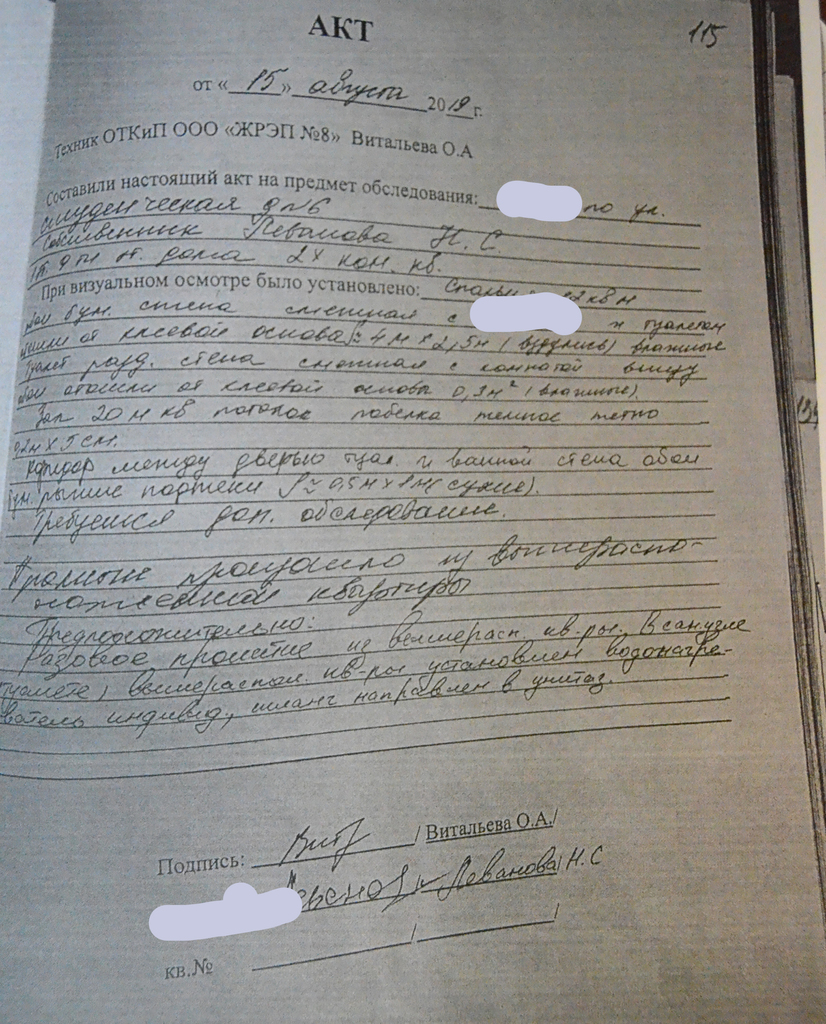 АКТ
115
от « 15 » августа 2019 г.
Техник ОТКиП ООО «ЖРЭП №8» Витальева О.А
Составили настоящий акт на предмет обследования: по ул.
студенческая д №6
Собственник Леванова Н. С.
эт. дома 2х ком. кв.
При визуальном осмотре было установлено: 12 кв м
бум. стена смежная с и туалетом
от клеевой основы ≈ 4м × 2,5м (вздулись) влажные
Туалет разд. стена смежная с комнатой внизу
обои отошли от клеевой основы (влажные).
Зал 20 м кв потолок побелка темное пятно
0,2м × 5 см.
Коридор между дверью туал. и ванной стена обои
бум. рыжие подтеки ≈ 0,5м × (сухие).
Требуется доп. обследование.
Пролитие произошло из вышераспо-
ложенной квартиры
Предположительно:
Разовое пролитие из вышерасп. кв-ры. В санузле
(туалете) вышераспол. кв-ры установлен водонагре-
ватель индивид, шланг направлен в унитаз.
Подпись: / Витальева О.А./
Леванова Н.С
/ /
кв.№